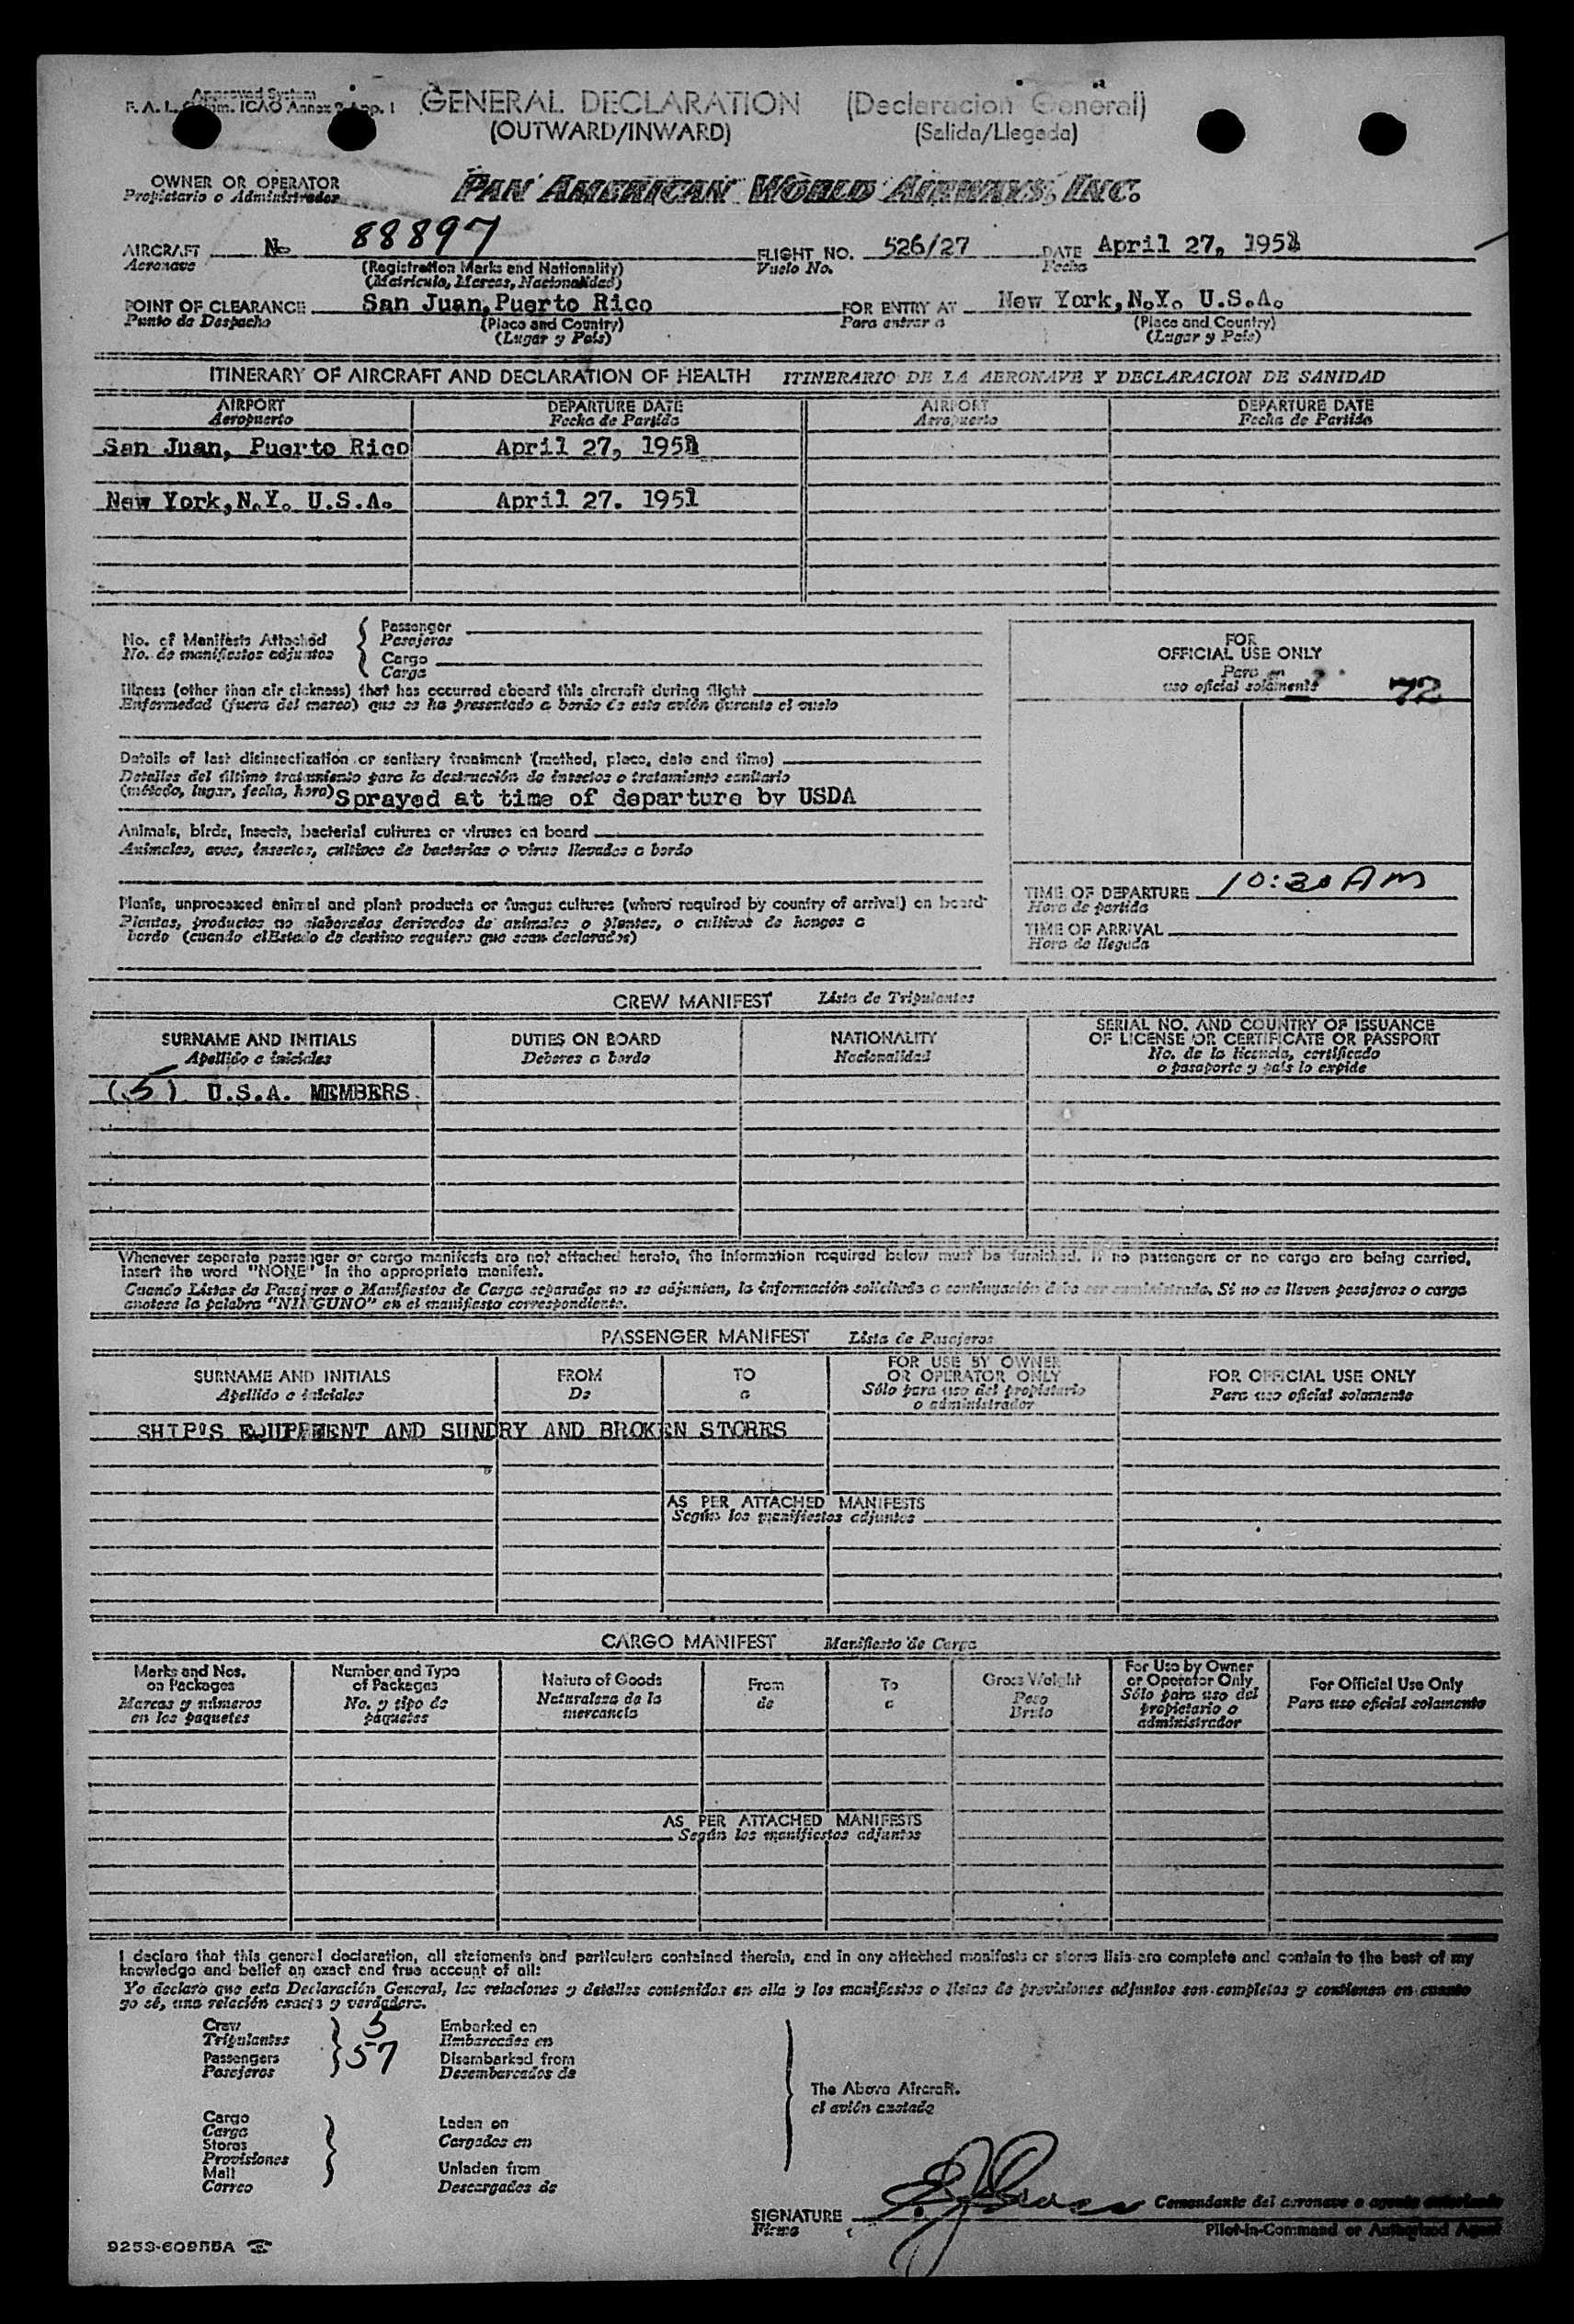 Approved System
F. A. L. Comm. ICAO Annex 9 App. 1
GENERAL DECLARATION (Declaracion General)
(OUTWARD/INWARD) (Salida/Llegada)
OWNER OR OPERATOR PAN AMERICAN WORLD AIRWAYS, INC.
Propietario o Administrador
AIRCRAFT N- 88897 FLIGHT NO. 526/27 DATE April 27, 1951
Aeronave (Registration Marks and Nationality) Vuelo No. Fecha
(Matricula, Marcas, Nacionalidad)
POINT OF CLEARANCE San Juan, Puerto Rico FOR ENTRY AT New York, N.Y. U.S.A.
Punto de Despacho (Place and Country) Para entrar a (Place and Country)
(Lugar y País) (Lugar y País)
ITINERARY OF AIRCRAFT AND DECLARATION OF HEALTH ITINERARIO DE LA AERONAVE Y DECLARACION DE SANIDAD
AIRPORT DEPARTURE DATE AIRPORT DEPARTURE DATE
Aeropuerto Fecha de Partida Aeropuerto Fecha de Partida
San Juan, Puerto Rico April 27, 1951
New York, N.Y. U.S.A. April 27. 1951
No. of Manifests Attached { Passenger
No. de manifiestos adjuntos Pasajeros
Cargo
Carga
FOR
OFFICIAL USE ONLY
Para
uso oficial solamente 72
Illness (other than air sickness) that has occurred aboard this aircraft during flight
Enfermedad (fuera del mareo) que se ha presentado a bordo de este avión durante el vuelo
Details of last disinsectization or sanitary treatment (method, place, date and time)
Detalles del último tratamiento para la destrucción de insectos o tratamiento sanitario
(método, lugar, fecha, hora) Sprayed at time of departure by USDA
Animals, birds, insects, bacterial cultures or viruses on board
Animales, aves, insectos, cultivos de bacterias o virus llevados a bordo
Plants, unprocessed animal and plant products or fungus cultures (where required by country of arrival) on board
Plantas, productos no elaborados derivados de animales o plantas, o cultivos de hongos a
bordo (cuando el Estado de destino requiera que sean declarados)
TIME OF DEPARTURE 10:30 AM
Hora de partida
TIME OF ARRIVAL
Hora de llegada
CREW MANIFEST Lista de Tripulantes
SURNAME AND INITIALS DUTIES ON BOARD NATIONALITY SERIAL NO. AND COUNTRY OF ISSUANCE
OF LICENSE OR CERTIFICATE OR PASSPORT
Apellido e iniciales Deberes a bordo Nacionalidad No. de la licencia, certificado
o pasaporte y país lo expide
(5) U.S.A. MEMBERS
Whenever separate passenger or cargo manifests are not attached hereto, the information required below must be furnished. If no passengers or no cargo are being carried,
insert the word "NONE" in the appropriate manifest.
Cuando Listas de Pasajeros o Manifiestos de Carga separados no se adjuntan, la información solicitada a continuación debe ser suministrada. Si no se lleven pasajeros o carga
anotese la palabra "NINGUNO" en el manifiesto correspondiente.
PASSENGER MANIFEST Lista de Pasajeros
SURNAME AND INITIALS FROM TO FOR USE BY OWNER OR OPERATOR ONLY FOR OFFICIAL USE ONLY
Apellido e iniciales De a Sólo para uso del propietario o administrador Para uso oficial solamente
SHIP'S EQUIPMENT AND SUNDRY AND BROKEN STORES
AS PER ATTACHED MANIFESTS
Según los manifiestos adjuntos
CARGO MANIFEST Manifiesto de Carga
Marks and Nos. on Packages Number and Type of Packages Nature of Goods From To Gross Weight For Use by Owner or Operator Only For Official Use Only
Marcas y números en los paquetes No. y tipo de paquetes Naturaleza de la mercancía de a Peso Bruto Sólo para uso del propietario o administrador Para uso oficial solamente
AS PER ATTACHED MANIFESTS
Según los manifiestos adjuntos
I declare that this general declaration, all statements and particulars contained therein, and in any attached manifests or stores lists are complete and contain to the best of my
knowledge and belief an exact and true account of all:
Yo declaro que esta Declaración General, las relaciones y detalles contenidos en ella y los manifiestos o listas de provisiones adjuntos son completos y contienen en cuanto
yo sé, una relación exacta y verdadera.
Crew 5 Embarked on
Tripulantes Embarcados en
Passengers 57 Disembarked from
Pasajeros Desembarcados de
The Above Aircraft.
el avión anotado
Cargo
Carga Laden on
Stores Cargados en
Provisiones
Mail Unladen from
Correo Descargados de
SIGNATURE Comandante del aeronave o agente autorizado
Firma Pilot-in-Command or Authorized Agent
9253-60955A